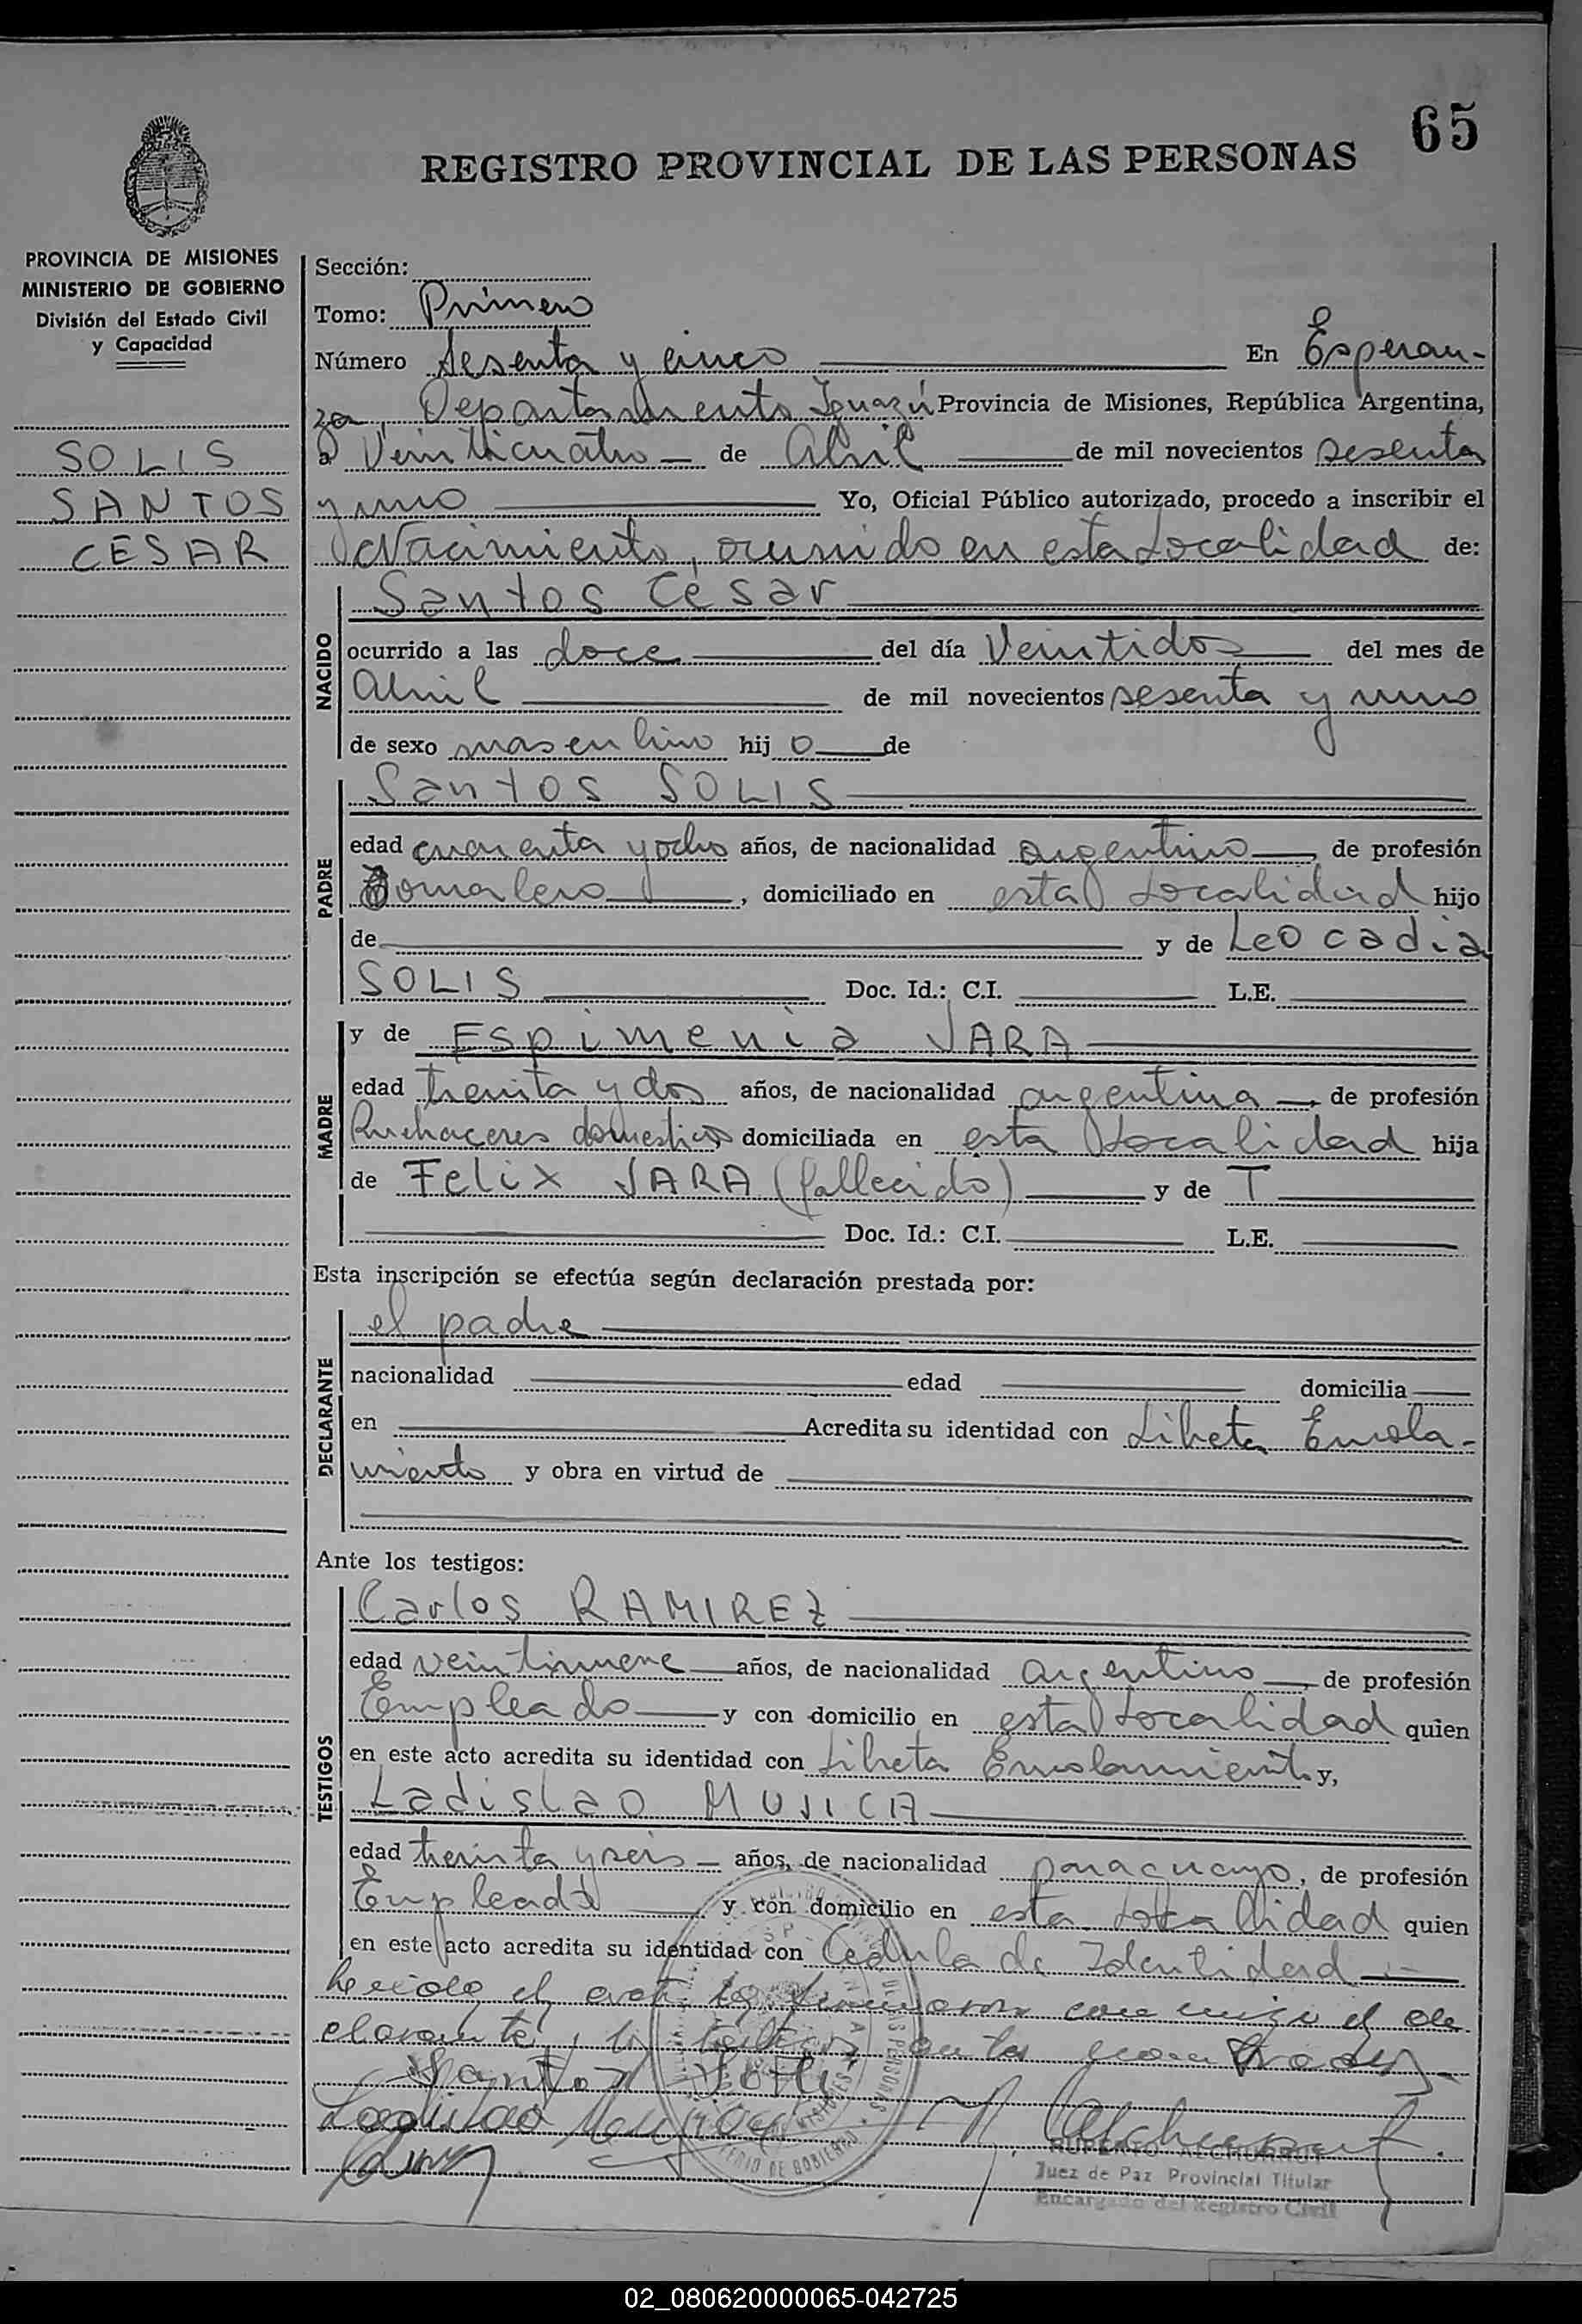 65
REGISTRO PROVINCIAL DE LAS PERSONAS
PROVINCIA DE MISIONES
MINISTERIO DE GOBIERNO
División del Estado Civil
y Capacidad
SOLIS
SANTOS
CESAR
Sección:
Tomo: Primero
Número Sesenta y cinco En Esperan-
za, Departamento Iguazú Provincia de Misiones, República Argentina,
a Veinticuatro de Abril de mil novecientos sesenta
y uno Yo, Oficial Público autorizado, procedo a inscribir el
Nacimiento, ocurrido en esta Localidad de:
NACIDO
Santos César
ocurrido a las doce del día Veintidos del mes de
Abril de mil novecientos sesenta y uno
de sexo masculino hijo de
PADRE
Santos SOLIS
edad cuarenta y ocho años, de nacionalidad argentino, de profesión
Jornalero, domiciliado en esta Localidad hijo
de y de Leocadia
SOLIS Doc. Id.: C.I. L.E.
MADRE
y de Espimenia JARA
edad treinta y dos años, de nacionalidad argentina, de profesión
Quehaceres domesticos domiciliada en esta Localidad hija
de Felix JARA (fallecido) y de T
Doc. Id.: C.I. L.E.
Esta inscripción se efectúa según declaración prestada por:
DECLARANTE
el padre
nacionalidad edad domicilia
en Acredita su identidad con Libreta Enrola-
miento y obra en virtud de
Ante los testigos:
TESTIGOS
Carlos RAMIREZ
edad veintinueve años, de nacionalidad argentino, de profesión
Empleado y con domicilio en esta Localidad quien
en este acto acredita su identidad con Libreta Enrolamiento y,
Ladislao MUJICA
edad treinta y seis años, de nacionalidad paraguayo, de profesión
Empleado y con domicilio en esta Localidad quien
en este acto acredita su identidad con Cedula de Identidad
el acta la conmigo el de
clarante, los testigos
Santos Solis
Ladislao
RUPERTO ALCHURRUT
Juez de Paz Provincial Titular
Encargado del Registro Civil
02_080620000065-042725